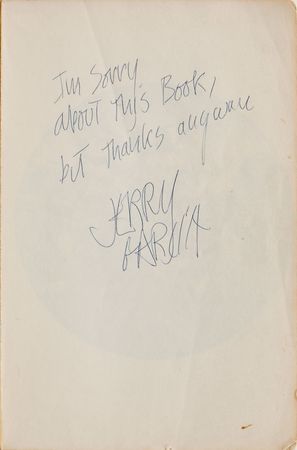 I'm Sorry
about this Book,
but thanks anyway
JERRY
GARCIA